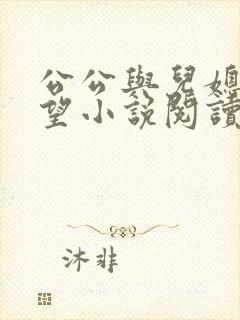 公公與兒媳
望小說閱讀
沐非